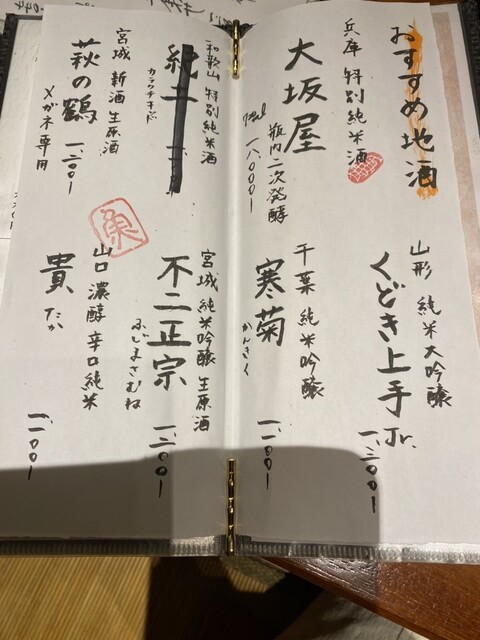 おすすめ地酒
兵庫 特別純米酒
大坂屋
瓶内二次発酵
一八〇〇〇ー
山形 純米大吟醸
くどき上手Jr.
一、三〇〇ー
千葉 純米吟醸
寒菊
かんきく
一、一〇〇ー
和歌山 特別純米酒
カラクチキッド
宮城 新酒生原酒
萩の鶴
メガネ専用
一、二〇〇ー
魚
宮城 純米吟醸 生原酒
不二正宗
ふじまさむね
一、二〇〇ー
山口 濃醇辛口純米
貴
たか
一、一〇〇ー